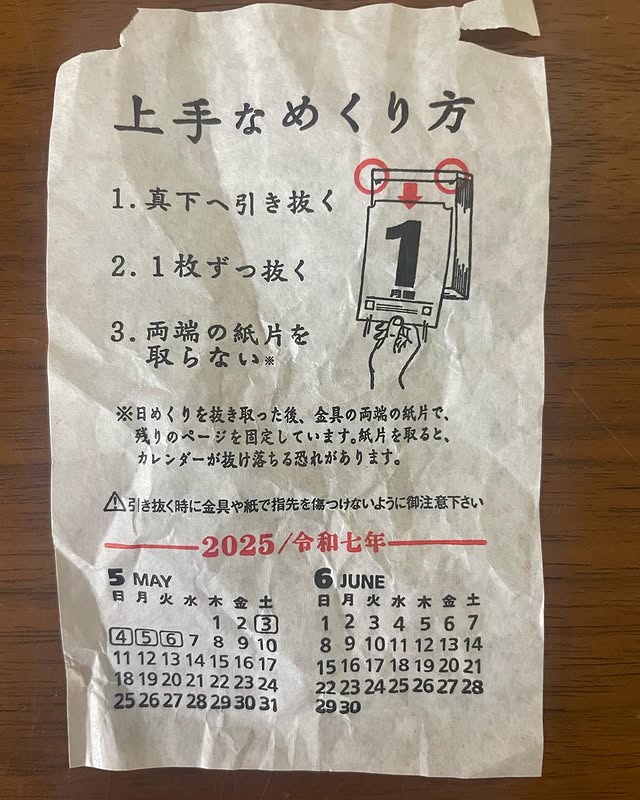 上手なめくり方
1. 真下へ引き抜く
2. 1枚ずつ抜く
3. 両端の紙片を
取らない※
1
月曜
※日めくりを抜き取った後、金具の両端の紙片で、
残りのページを固定しています。紙片を取ると、
カレンダーが抜け落ちる恐れがあります。
⚠引き抜く時に金具や紙で指先を傷つけないように御注意下さい
2025/令和七年
5 MAY
日 月 火 水 木 金 土
1 2 3
4 5 6 7 8 9 10
11 12 13 14 15 16 17
18 19 20 21 22 23 24
25 26 27 28 29 30 31
6 JUNE
日 月 火 水 木 金 土
1 2 3 4 5 6 7
8 9 10 11 12 13 14
15 16 17 18 19 20 21
22 23 24 25 26 27 28
29 30